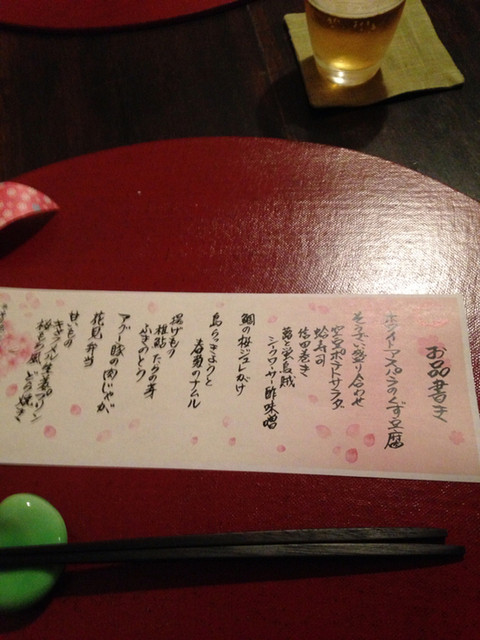 お品書き
ホワイトアスパラのくず豆腐
そうざい盛り合わせ
空豆ポテトサラダ
蛤寿司
信田巻き
菊と蛍烏賊
シークワーサー酢味噌
鯛の桜ジュレがけ
島らっきょうと
春菊のナムル
揚げもの
稚鮎 たらの芽
ふきのとう
アグー豚の肉じゃが
花見弁当
甘いもの
キャラメル生姜プリン
桜もち風 どら焼き